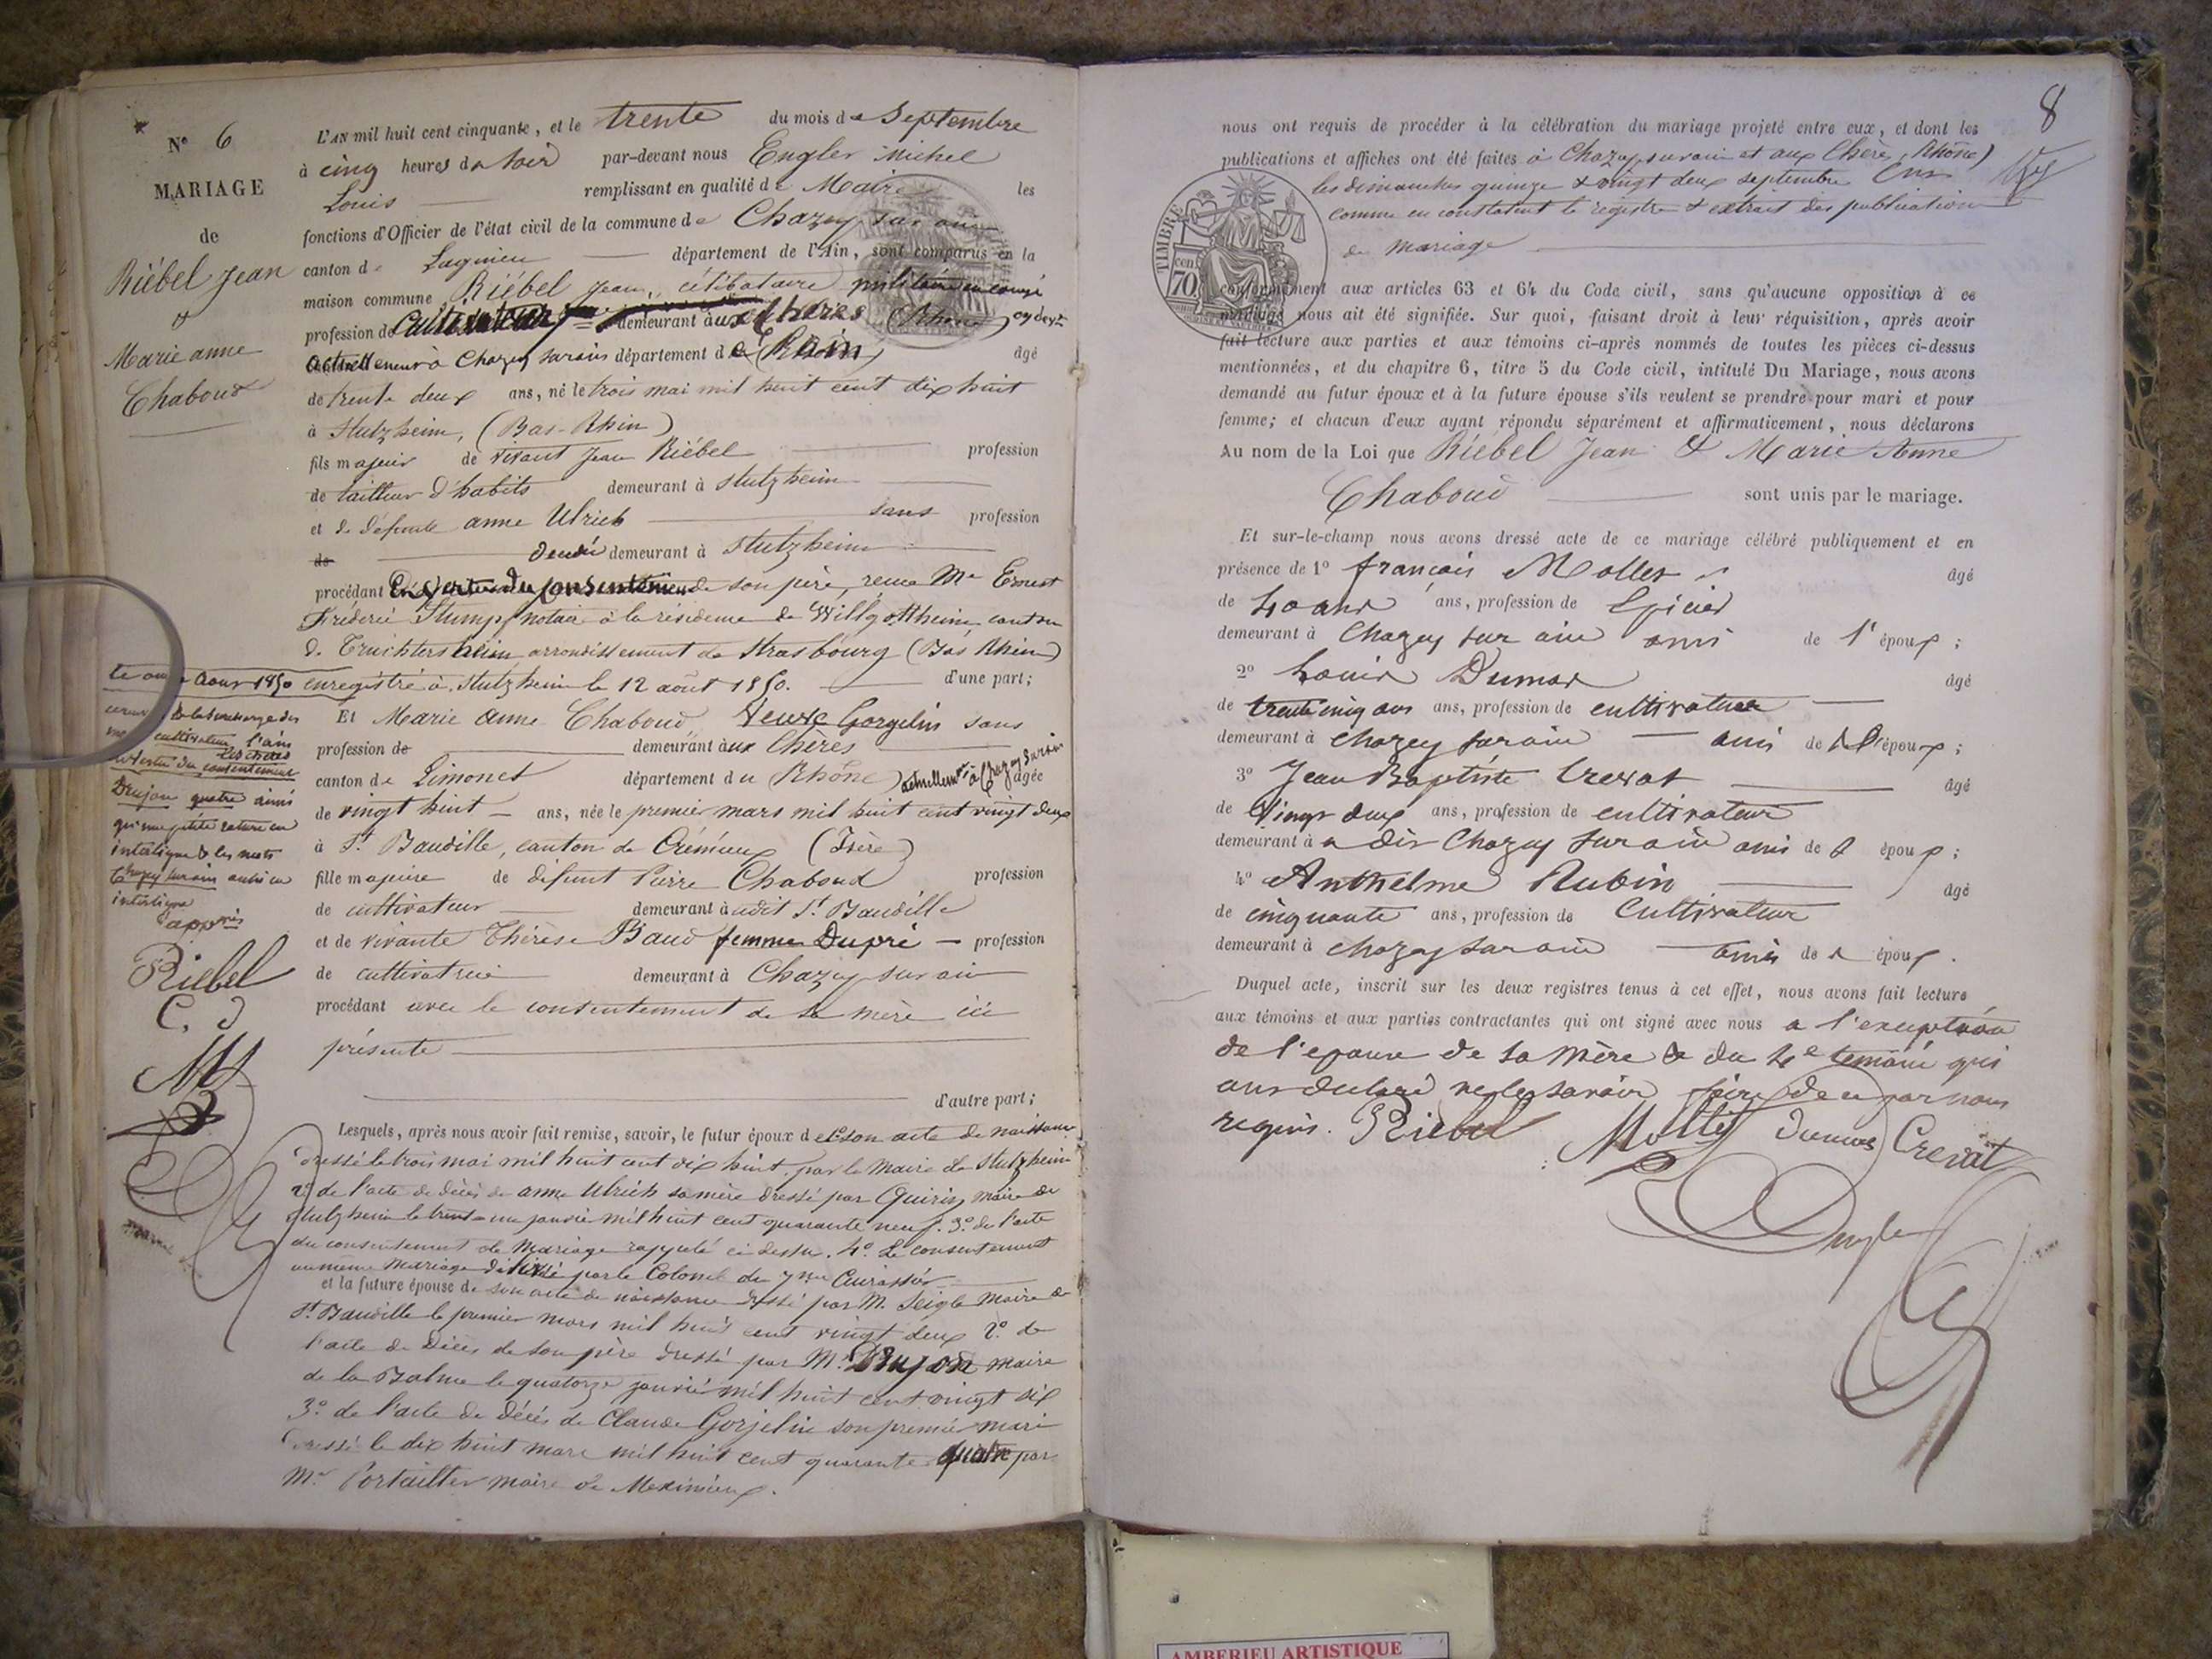 N° 6
MARIAGE
de
Riébel Jean
&
Marie anne
Chaboud
L'AN mil huit cent cinquante, et le trente du mois de Septembre
à cinq heures du soir par-devant nous Engler Michel
Louis remplissant en qualité de Maire les
fonctions d'Officier de l'état civil de la commune de Chazey sur ain
canton de Lagnieu département de l'Ain, sont comparus en la
maison commune Riébel Jean, célibataire militaire en congé
profession de cultivateur demeurant aux Chères (Rhône)
actuellement à Chazey sur ain département de l'ain âgé
de trente deux ans, né le trois mai mil huit cent dix huit
à Stutzheim, (Bas-Rhin)
fils majeur de vivant Jean Riébel profession
de tailleur d'habits demeurant à Stutzheim
et de défunte anne Ulrich sans profession
de demeurant à Stutzheim
procédant En vertu du consentement de son père, reçu Me Ernest
Fréderic Stumpf notaire à la résidence de Willgottheim, canton
de Truchtersheim arrondissement de Strasbourg (Bas Rhin)
aout 1850 enregistré à Stutzheim le 12 août 1850. d'une part;
Et Marie anne Chaboud Veuve Gorgelin sans
profession de demeurant aux Chères
canton de Limonest département du (Rhône) actuellemt à Chazey sur ain âgée
de vingt huit ans, née le premier mars mil huit cent vingt deux
à St Baudille, canton de Crémieux (Isère)
fille majeure de défunt Pierre Chaboud profession
de cultivateur demeurant audit St Baudille
et de vivante Thérèse Baud femme Dupré profession
de cultivatrice demeurant à Chazey sur ain
procédant avec le consentement de sa mère ici
présente
d'autre part;
Lesquels, après nous avoir fait remise, savoir, le futur époux de son acte de naissance
dressé le trois mai mil huit cent dix huit par le Maire de Stutzheim
2° de l'acte de décès de anne Ulrich sa mère dressé par Quirin maire de
Stutzheim le trente un janvier mil huit cent quarante neuf. 3° de l'acte
du consentement de Mariage rappelé ci dessus. 4° Le consentement
au même mariage délivré par le Colonel du 7me Cuirassier
et la future épouse de son acte de naissance dressé par M. Seigle Maire de
St Baudille le premier mars mil huit cent vingt deux 2° de
l'acte de Décès de son père dressé par Mr Drujon maire
de la Balme le quatorze janvier mil huit cent vingt dix
3° de l'acte de décès de Claude Gorjelin son premier mari
dressé le dix huit mars mil huit cent quarante quatre par
Mr Portailler maire de Meximieux.
cultivateur l'ain
les chères
consentement
Drujon quatre ainsi
qu'une petite rature en
interligne & les mots
Chazey sur ain aussi en
interligne
Riebel
C. D
8
nous ont requis de procéder à la célébration du mariage projeté entre eux, et dont les
publications et affiches ont été faites à Chazey sur ain et aux Chères (Rhône)
les dimanches quinze & vingt deux septembre
comme en constatent le registre & extrait des publications
de mariage
TIMBRE
70 cen
conformément aux articles 63 et 64 du Code civil, sans qu'aucune opposition à ce
mariage nous ait été signifiée. Sur quoi, faisant droit à leur réquisition, après avoir
fait lecture aux parties et aux témoins ci-après nommés de toutes les pièces ci-dessus
mentionnées, et du chapitre 6, titre 5 du Code civil, intitulé Du Mariage, nous avons
demandé au futur époux et à la future épouse s'ils veulent se prendre pour mari et pour
femme; et chacun d'eux ayant répondu séparément et affirmativement, nous déclarons
Au nom de la Loi que Riébel Jean & Marie Anne
Chaboud sont unis par le mariage.
Et sur-le-champ nous avons dressé acte de ce mariage célébré publiquement et en
présence de 1° françois Mollet âgé
de 40 ans ans, profession de Epicier
demeurant à Chazey sur ain ami de l' époux;
2° Louis Dumas âgé
de trente cinq ans ans, profession de cultivateur
demeurant à chazey sur ain ami de l'époux;
3° Jean Baptiste Crevat âgé
de Vingt deux ans, profession de cultivateur
demeurant à Chazey sur ain amis de époux;
4° Anthelme Rubin âgé
de cinquante ans, profession de Cultivateur
demeurant à chazey sur ain amis de époux.
Duquel acte, inscrit sur les deux registres tenus à cet effet, nous avons fait lecture
aux témoins et aux parties contractantes qui ont signé avec nous a l'exception
de l'epouse de sa mère & du 4e temoin qui
ont déclaré ne le savoir faire de ce par nous
requis. Riebel Mollet Dumas Crevat
Engler
AMBERIEU ARTISTIQUE